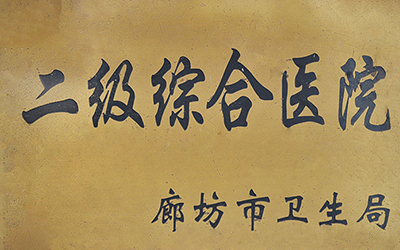 二级综合医院
廊坊市卫生局